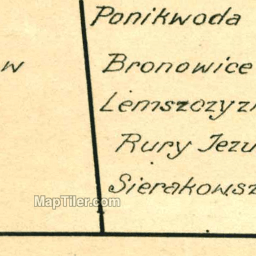 Ponikwoda
w Bronowice
Lemszczyzn
Rury Jezu
Sierakowsz
MapTiler.com